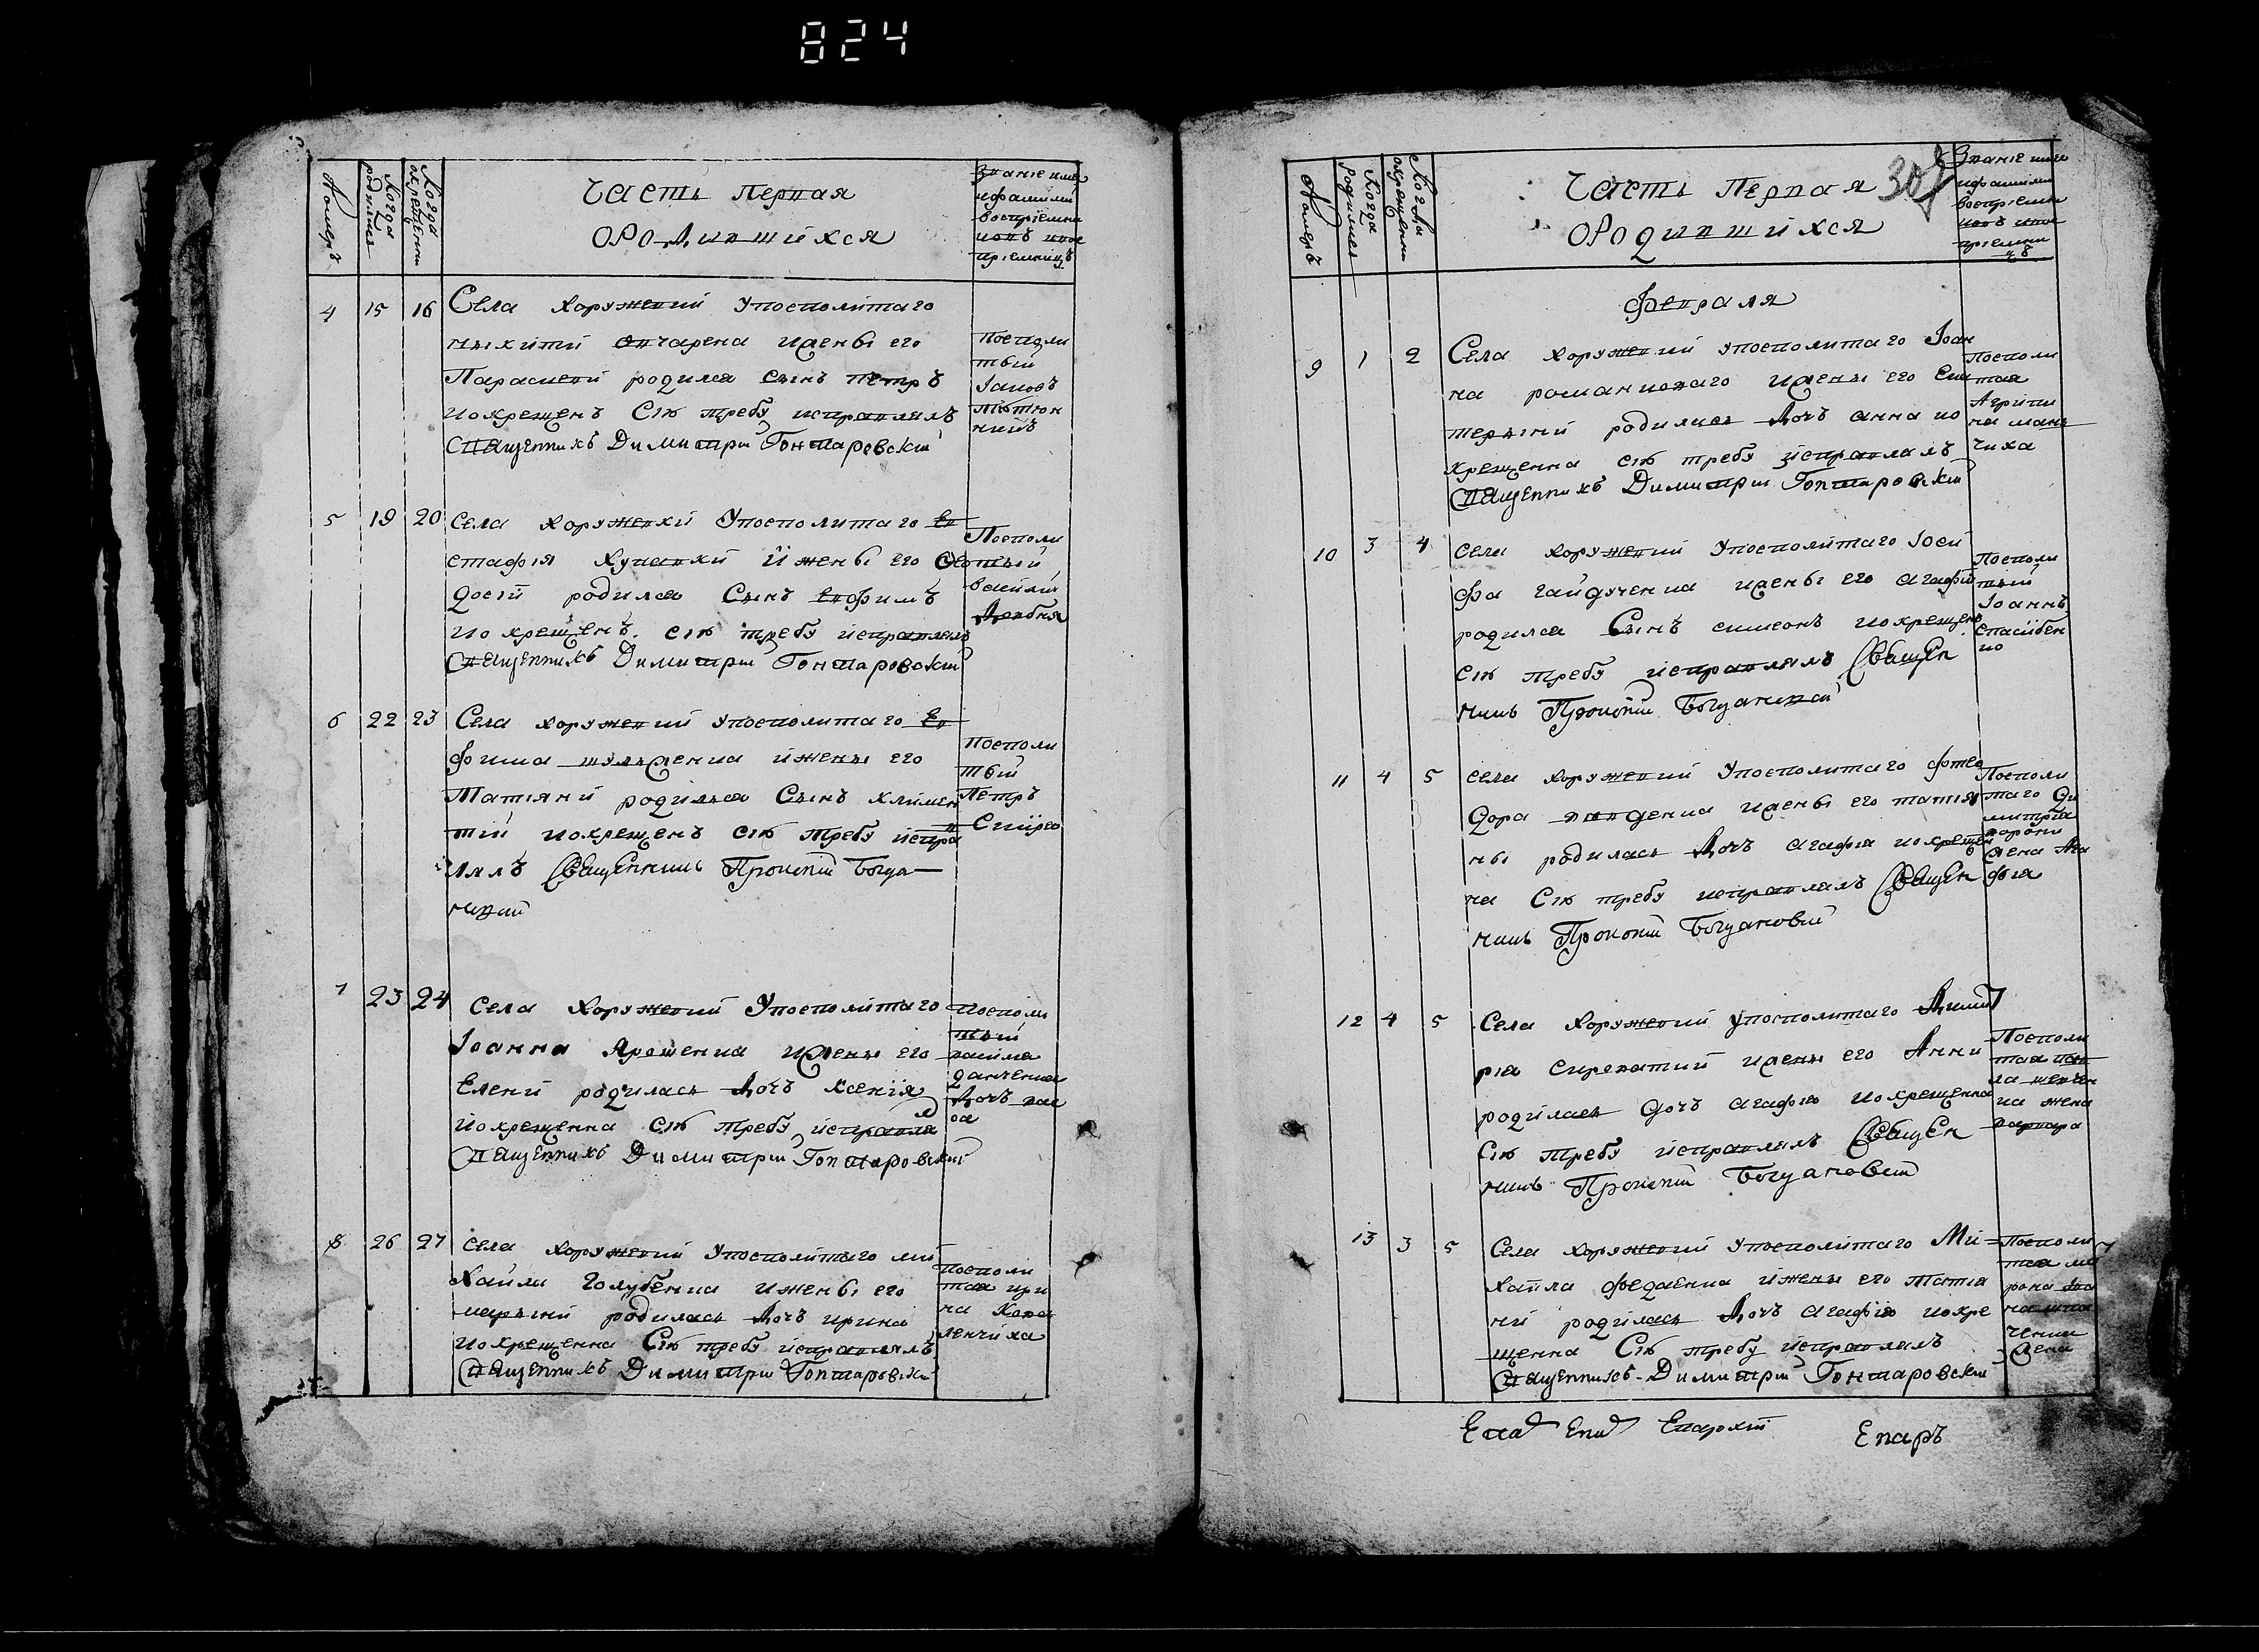 824
Номеръ
Когда родился
Когда окрещенъ
Часть первая
О Родившихся
Званіе имя
и фамилии
воспріемни
ковъ и вос
пріемницъ
4 15 16 Села Хоружевки у посполитаго
Никити Овчарена и жены его
Параскеви родился сынъ Петръ
и окрещенъ Сію требу исправлялъ
Священникъ Димитрий Гонтаровский
Посполи
тый
Іаковъ
5 19 20 Села Хоружевки у посполитаго Ев
стафія и жены его Фео
досіи родился Сынъ Евфимъ
и окрещенъ. сію требу исправлялъ
Священникъ Димитрий Гонтаровский
Посполи
тый
василий
6 22 23 Села Хоружевки у посполитаго Ев
фима шульженка и жены его
Татіяни родился Сынъ Климен
тий и окрещенъ сію требу испра
влялъ Священникъ Прокопій Богда
новий
Посполи
тый
Петръ
7 23 24 Села Хоружевки у посполитаго
Іоанна Ярошенка и жены его
Елени родилась Дочъ Ксенія
и окрещенна сію требу исправля
Священникъ Димитрий Гонтаровский
Посполи
тый
данченка
Дочъ
8 26 27 Села Хоружевки у посполитаго ми
хайла Голубенка и жены его
марыни родилась Дочъ ирина
и окрещенна Сію требу исправлялъ
Священникъ Димитрий Гонтаровский
Посполи
тая ири
на Кова
ленчиха
Номеръ
Когда родился
Когда окрещенъ
Часть Первая
О Родившихся
Званіе имя
и фамилии
воспріемни
ковъ и вос
пріемни
цъ
Февраля
9 1 2 Села Хоружевки у посполитаго Іоан
на романоваго и жены его Ека
терыни родилась Дочъ анна и о
крещенна сію требу исправлялъ
Священникъ Димитрий Гонтаровский
Посполи
тая
Агрипи
на
чиха
10 3 4 Села Хоружевки у посполитаго Іоси
фа гайдученка и жены его агафи
родился Сынъ симеонъ и окрещенъ
сію требу исправлялъ Священ
никъ Прокопій Богдановий
Посполи
тый
Іоаннъ
спасибен
ко
11 4 5 Села Хоружевки у посполитаго фео
дора и жены его татія
ны родилась Дочъ агафія и окрещен
на Сію требу исправлялъ Священ
никъ Прокопий Богдановий
Посполи
таго Ди
митрія
жена Ага
фія
12 4 5 Села Хоружевки у посполитаго Димит
рія и жены его Анни
родилась дочъ агафія и окрещенна
Сію требу исправлялъ Священ
никъ Прокопий Богдановий
Посполи
тая
ка жена
варвара
13 3 5 Села Хоружевки у посполитаго Ми
хайла федченка и жены его Татія
ни родилась Дочъ агафія и окре
щенна Сію требу исправлялъ
Священникъ Димитрий Гонтаровский
Посполи
тая
жена